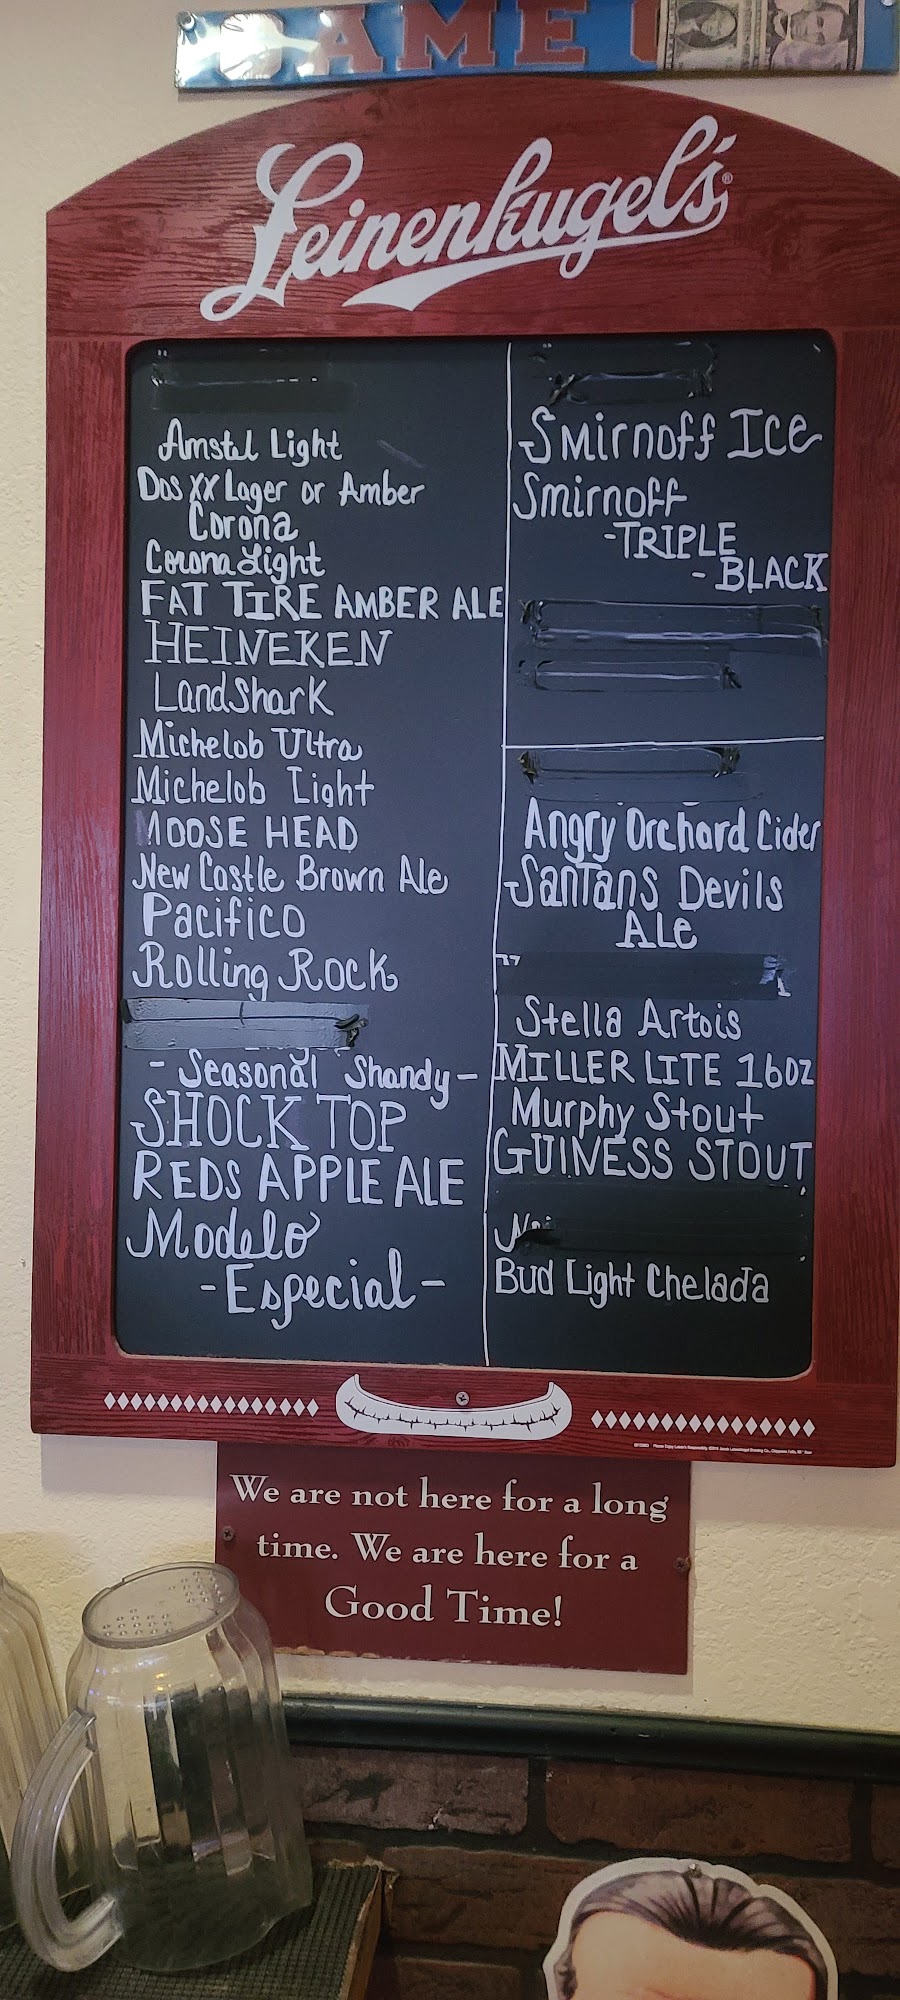 AME
Leinenkugel's®
Amstel Light
Dos XX Lager or Amber
Corona
Corona Light
FAT TIRE AMBER ALE
HEINEKEN
LandShark
Michelob Ultra
Michelob Light
MOOSE HEAD
New Castle Brown Ale
Pacifico
Rolling Rock
- Seasonal Shandy -
SHOCK TOP
REDS APPLE ALE
Modelo
- Especial -
Smirnoff Ice
Smirnoff
- TRIPLE
- BLACK
Angry Orchard Cider
SanTans Devils
Ale
Stella Artois
MILLER LITE 16oz
Murphy Stout
GUINESS STOUT
Bud Light Chelada
We are not here for a long
time. We are here for a
Good Time!